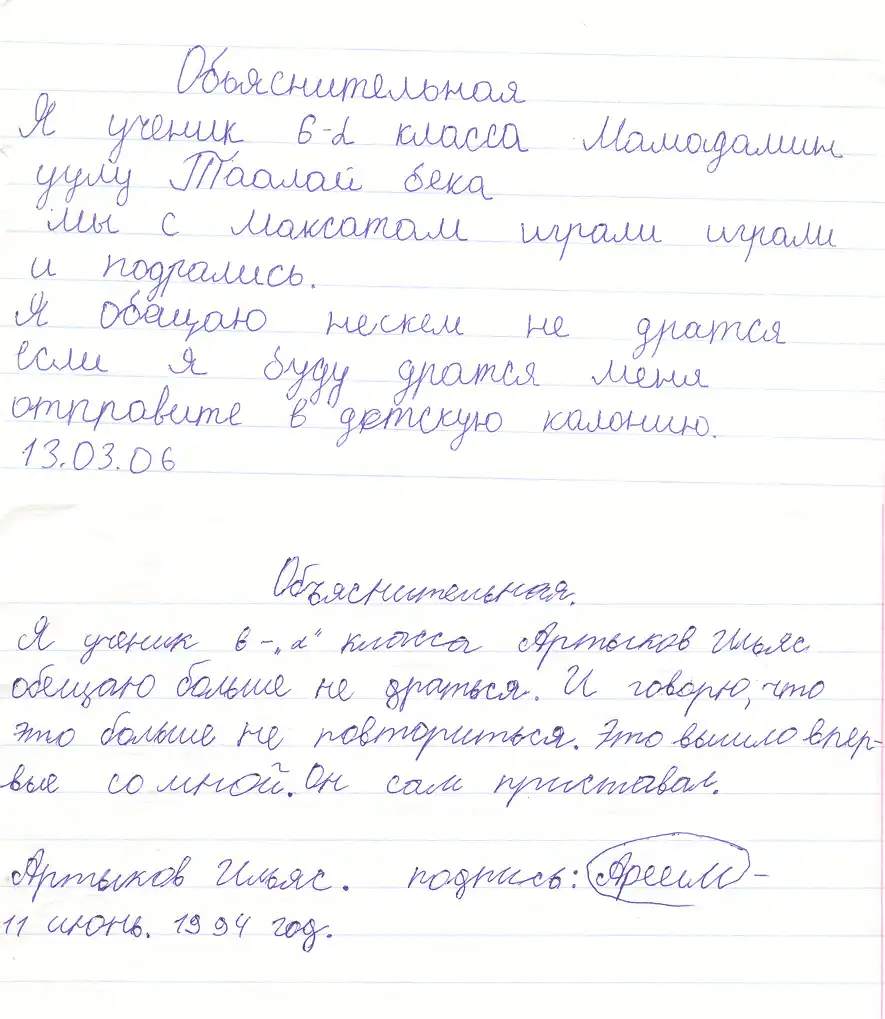 Обьяснительная
Я ученик 6-α класса Мамадамин
уулу Таалай бека
мы с Максатам играли играли
и подрались.
Я обещаю нескем не дратся
если я буду дратся меня
отправите в детскую калонию.
13.03.06
Объяснительная.
Я ученик 6-„α" класса Артыков Ильяс
обещаю больше не драться. И говорю, что
это больше не повториться. Это вышло впер-
вые со мной. Он сам приставал.
Артыков Ильяс. подпись:
11 июнь. 1994 год.